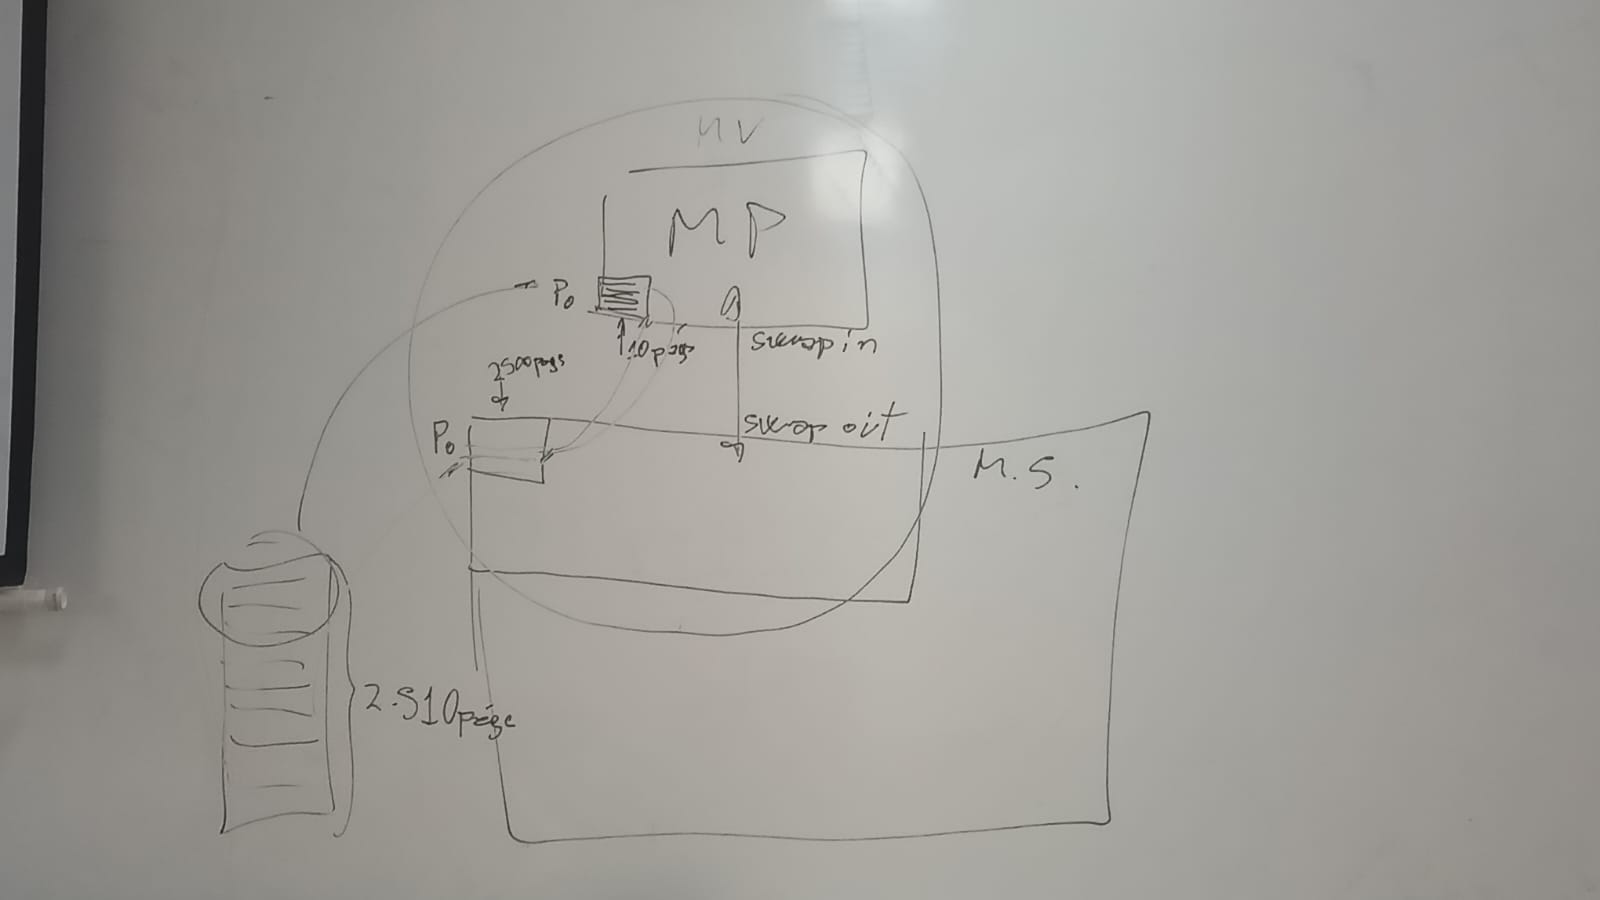 MV
MP
P₀
10 pags
swap in
2500 pags
swap out
P₀
M.S.
2.510 page